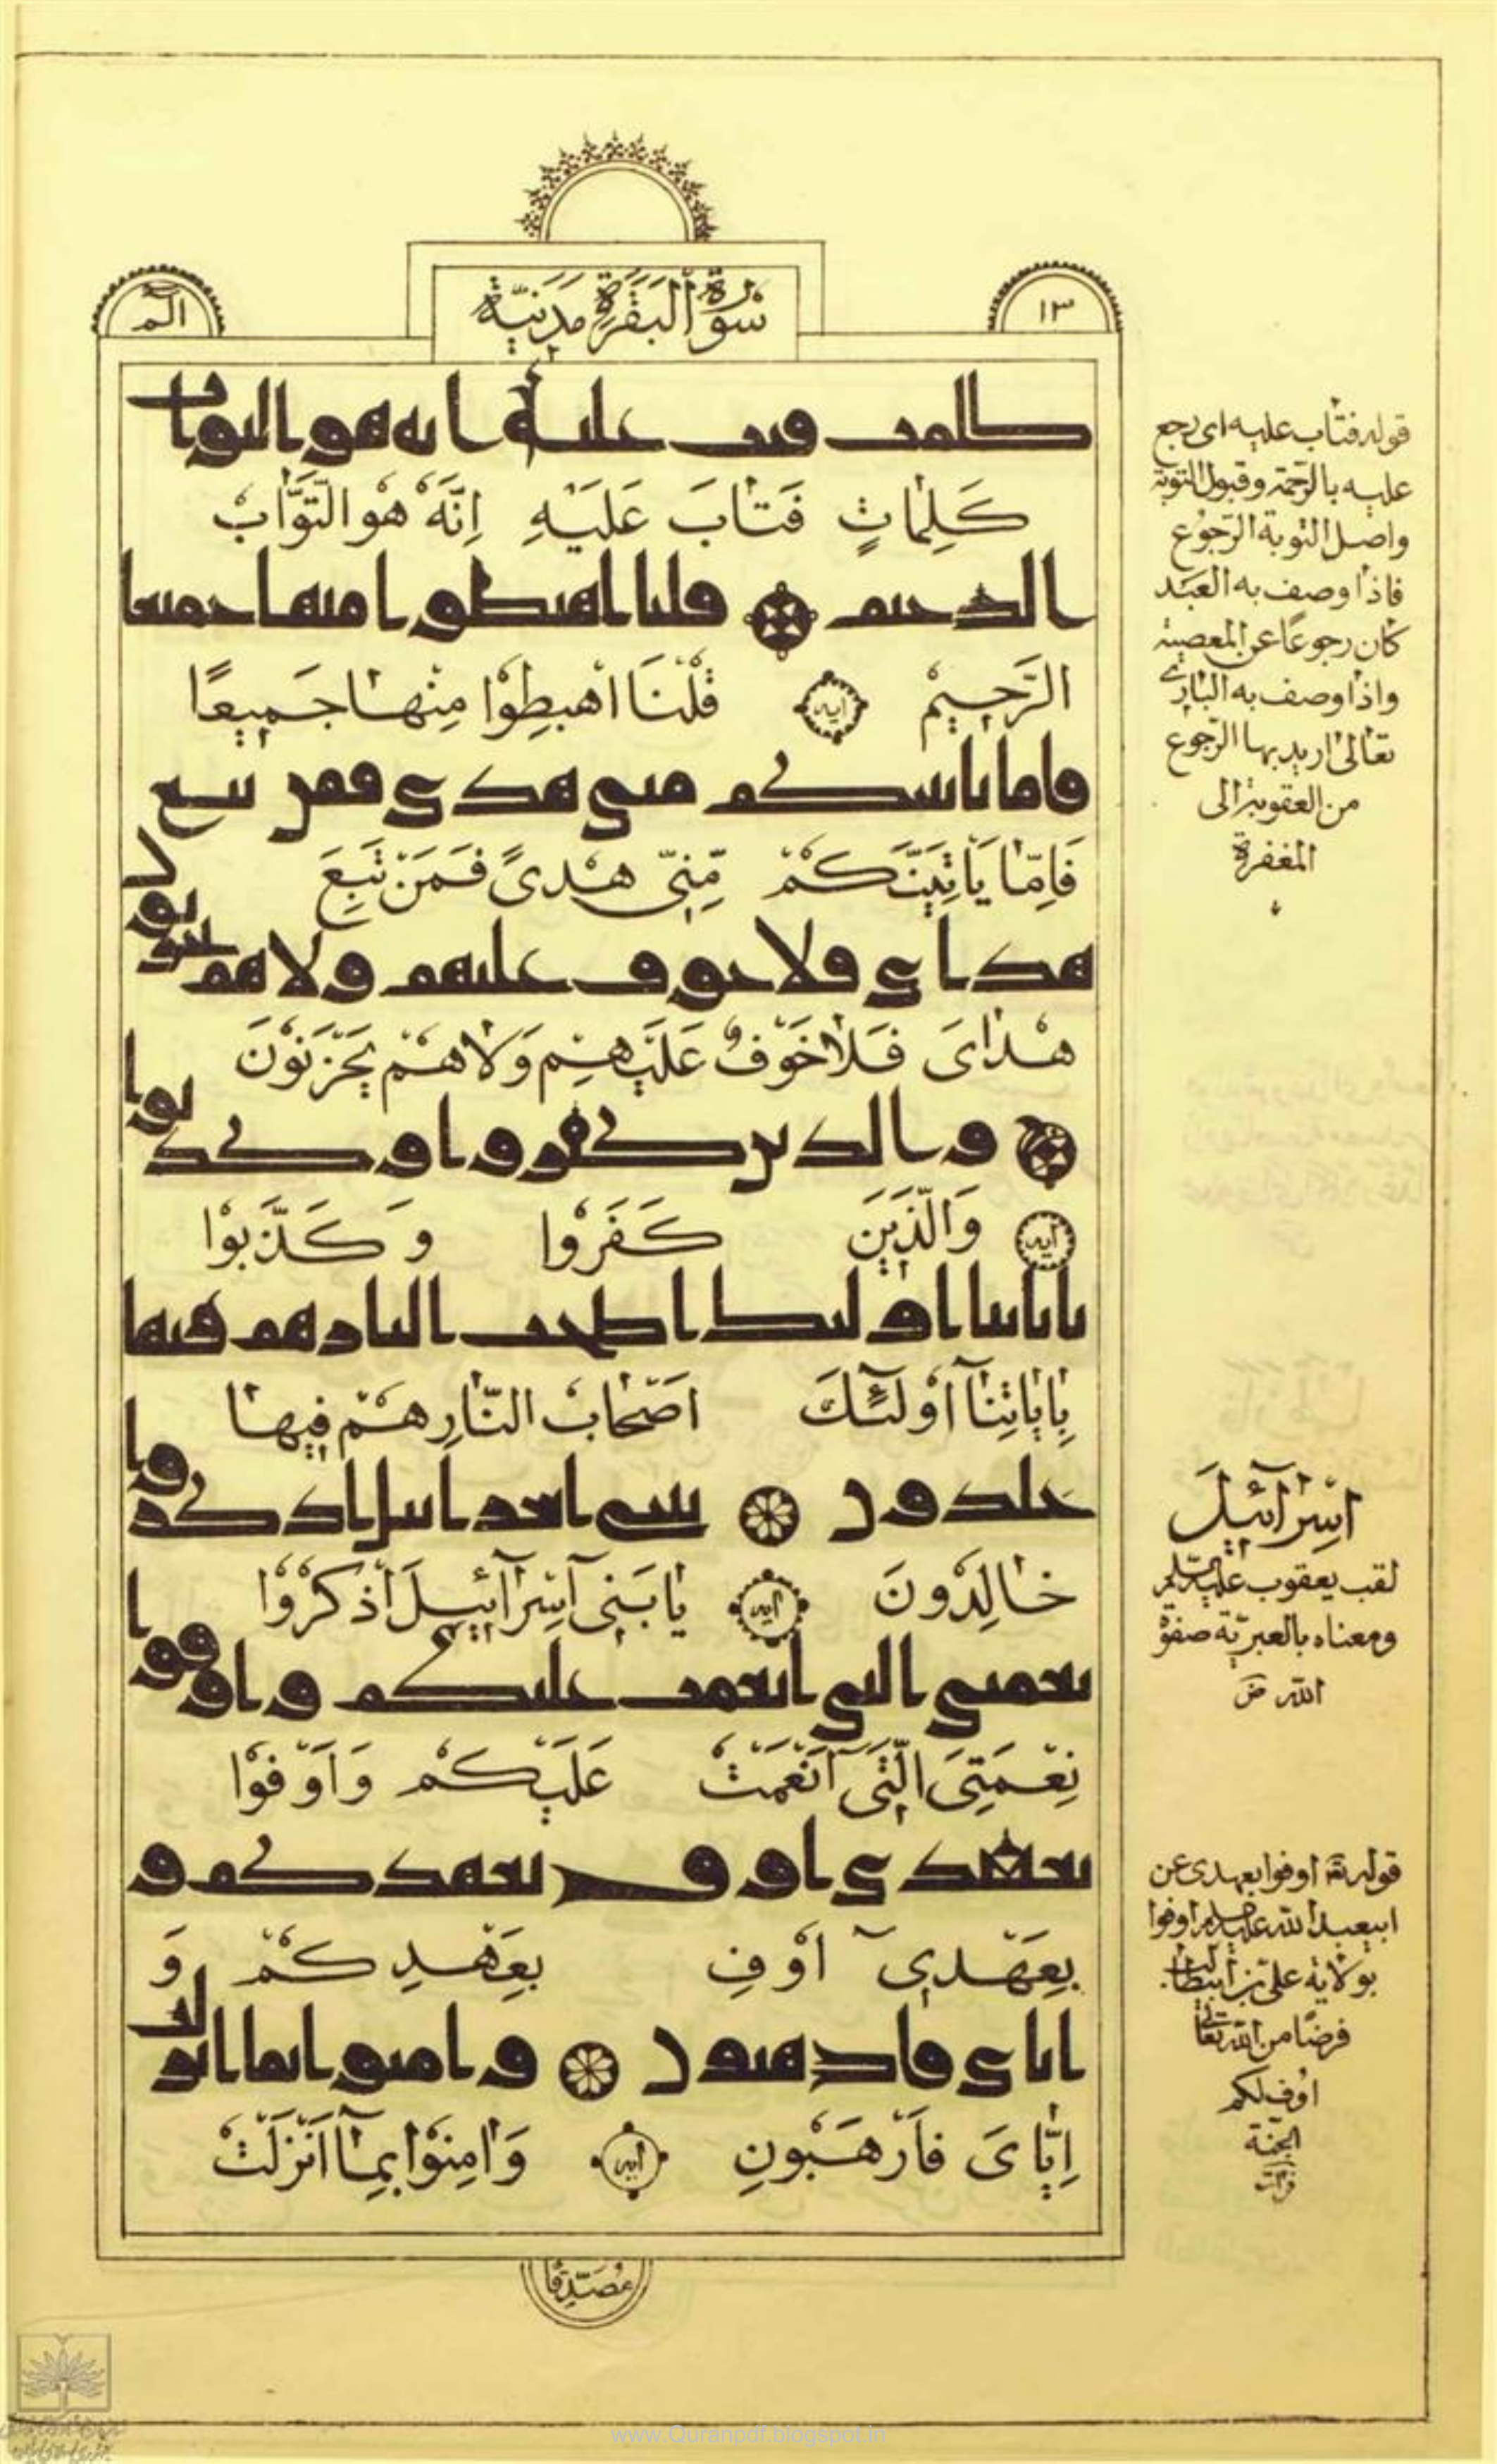 الٓمٓ
سُورَةُ الْبَقَرَةِ مَدَنِيَّةٌ
١٣
كلمت فتب عليه انه هو التواب
كَلِمٰاتٍ فَتٰابَ عَلَيْهِ اِنَّهُ هُوَ التَّوّٰابُ
الرحيم قلنا اهبطوا منها جميعا
الرَّحِيمُ ايه قُلْنَا اهْبِطُوْا مِنْهٰا جَمِيعًا
فاما ياتينكم مني هدى فمن تبع
فَاِمّٰا يَاْتِيَنَّكُمْ مِّنِّى هُدىً فَمَنْ تَبِعَ
هداى فلا خوف عليهم ولا هم يحزنون
هُدٰاىَ فَلاٰ خَوْفٌ عَلَيْهِمْ وَلاٰ هُمْ يَحْزَنُوْنَ
والذين كفروا وكذبوا
ايه وَالَّذِينَ كَفَرُوْا وَ كَذَّبُوْا
باياتنا اوليك اصحب النار هم فيها
بِاٰيٰاتِنٰا اُوْلٰئِكَ اَصْحٰابُ النّٰارِ هُمْ فِيهٰا
خلدون يبني اسرايل اذكروا
خٰالِدُونَ ايه يٰا بَنِى اِسْرٰٓائِيلَ اذْكُرُوْا
نعمتي التي انعمت عليكم واوفوا
نِعْمَتِىَ الَّتِى اَنْعَمْتُ عَلَيْكُمْ وَاَوْفُوْا
بعهدي اوف بعهدكم و
بِعَهْدِىٓ اُوْفِ بِعَهْدِكُمْ وَ
اياي فارهبون وامنوا بما انزلت
اِيّٰاىَ فَارْهَبُونِ ايه وَاٰمِنُوْا بِمٰٓا اَنْزَلْتُ
مُصَدِّقًا
قوله فتاب عليه اى رجع
عليه بالرّحمة وقبول التوبة
واصل التوبة الرّجوع
فاذا وصف به العبد
كان رجوعًا عن المعصية
واذا وصف به البارى
تعالى اريد بها الرّجوع
من العقوبة الى
المغفرة
اِسْرٰٓائِيلَ
لقب يعقوب عليه السّلم
ومعناه بالعبريّة صفوة
الله ض
قوله تع اوفوا بعهدى عن
ابيعبد الله عليه السلم اوفوا
بولاية علىّ بن ابيطالب
فرضًا من الله تعالى
اوُف لكم
الجنّة
www.Quranpdf.blogspot.in